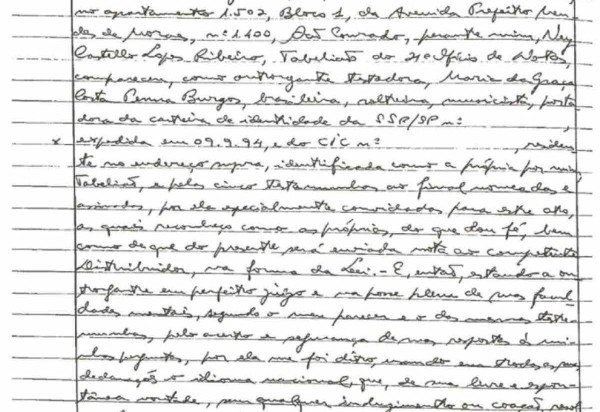 no apartamento 1.502, Bloco 1, da Avenida Prefeito Men-
des de Moraes, nº 1.400, São Conrado, perante mim, Ney
Castello Lopes Ribeiro, Tabelião do 21º Ofício de Notas,
compareceu, como outorgante testadora, Maria da Graça
Costa Penna Burgos, brasileira, solteira, musicista, porta-
dora da carteira de identidade da SSP/SP nº ,
x expedida em 09.9.94, e do CIC nº , residen-
te no endereço supra, identificada como a própria por mim,
Tabelião, e pelas cinco testemunhas ao final nomeadas e
assinadas, por ela especialmente convidadas para este ato,
as quais reconheço como as próprias, do que dou fé, bem
como de que do presente será enviada nota ao competente
Distribuidor, na forma da Lei.- E, então, estando a ou-
torgante em perfeito juízo e na posse plena de suas facul-
dades mentais, segundo o meu parecer e o das mesmas teste-
munhas, pelo acerto e segurança de suas respostas à mi-
nhas perguntas, por ela me foi dito, usando em todas as su
declarações o idioma nacional, que, de sua livre e espon-
tânea vontade, sem qualquer induzimento ou coação, resol